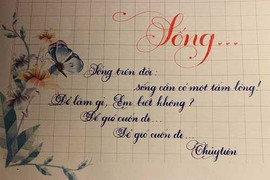 Sống...
Sống trên đời:
sống cần có một tấm lòng!
Để làm gì, Em biết không?
Để gió cuốn đi...
Để gió cuốn đi...
Thủytiên